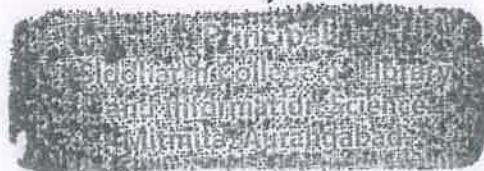 Principal
Siddharth College of Library
and Information Science
Mitmita, Aurangabad